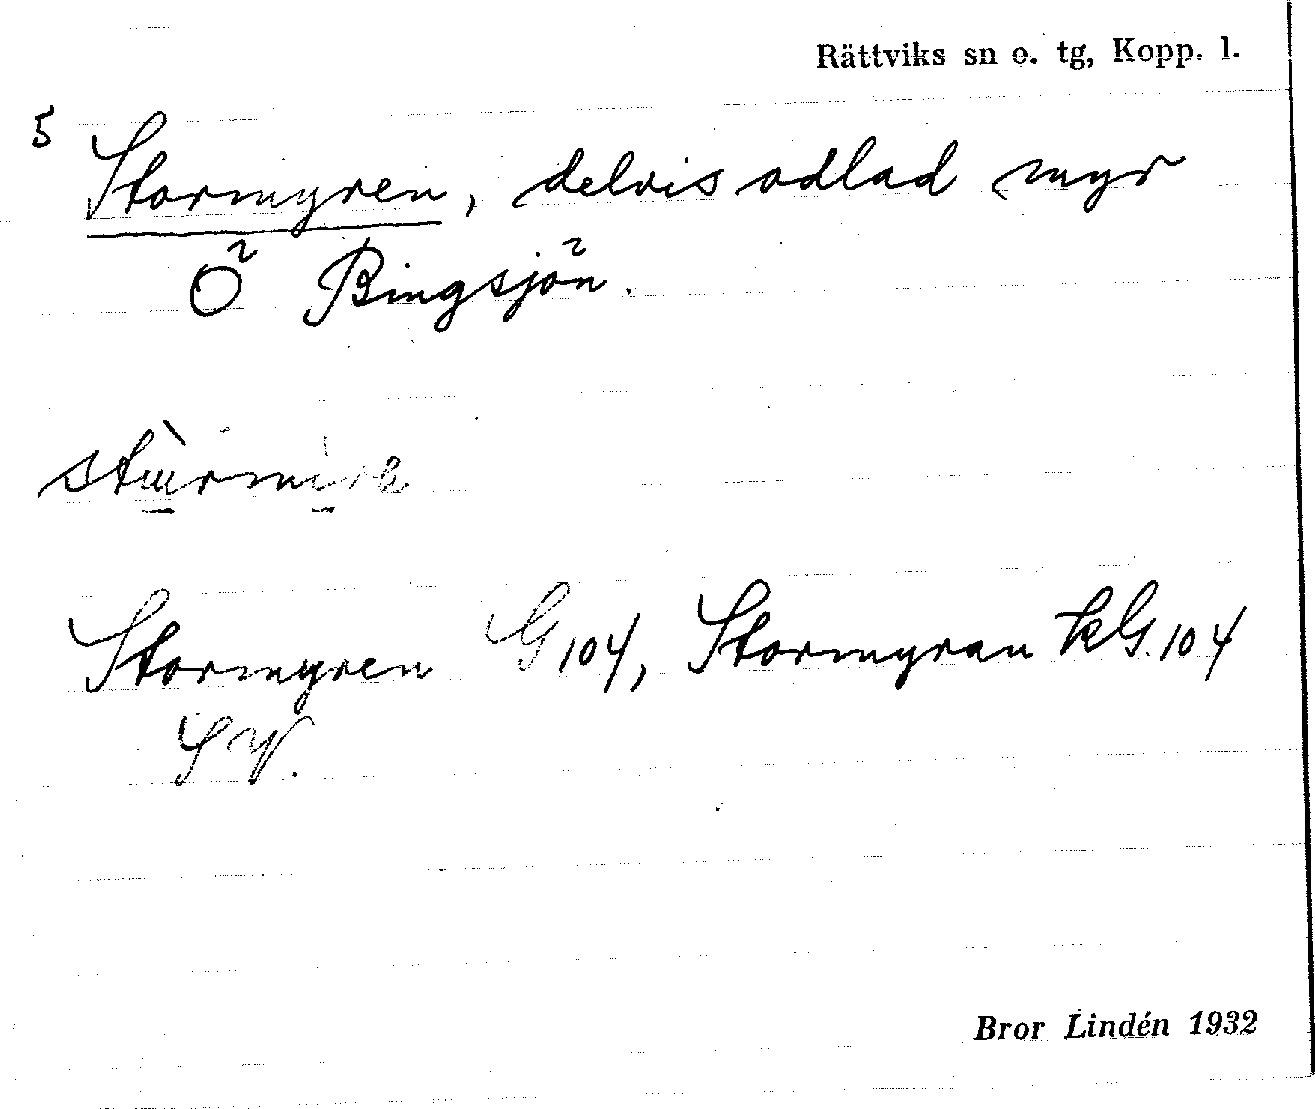 Rättviks sn o. tg, Kopp. l.
5
Stormyren, delvis odlad myr
Ö Bingsjön.
Stormyren G 104, Stormyran kG. 104
SV.
Bror Lindén 1932